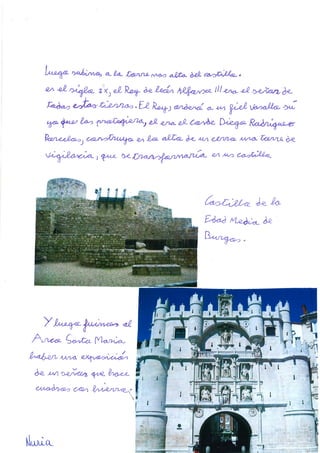 Luego subimos a la torre mas alta del castillo.
en el siglo IX, el Rey de león Alfonso III era el señor de
todas estas tierras. El Rey, ordenó a un fiel vasallo su
yo que los protegiera, el era el conde Diego Rodríguez
Porcelos, construyo en lo alto de un cerro una torre de
vigilancia, que se transformaría en un castillo
Castillo de la
Edad Media de
Burgos.
Y luego fuimos al
Arco Santa Maria
haber una exposición
de un señor que hace
cuadros con hierro.
Nuria